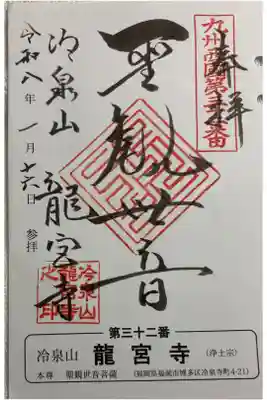 奉拝
九州西国第三十二番
聖観世音
冷泉山
龍宮寺
冷泉山龍宮寺之印
令和八年一月十六日 参拝
第三十二番
冷泉山 龍宮寺 (浄土宗)
本尊 聖観世音菩薩 (福岡県福岡市博多区冷泉寺町4-21)